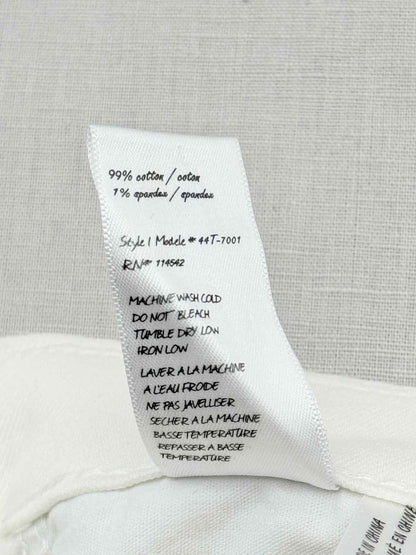 99% cotton / coton
1% spandex / spandex
Style / Modele # 44T-7001
RN# 114542
MACHINE WASH COLD
DO NOT BLEACH
TUMBLE DRY LOW
IRON LOW
LAVER A LA MACHINE
A L'EAU FROIDE
NE PAS JAVELLISER
SECHER A LA MACHINE
BASSE TEMPERATURE
REPASSER A BASSE
TEMPERATURE
IN CHINA
EN CHINE